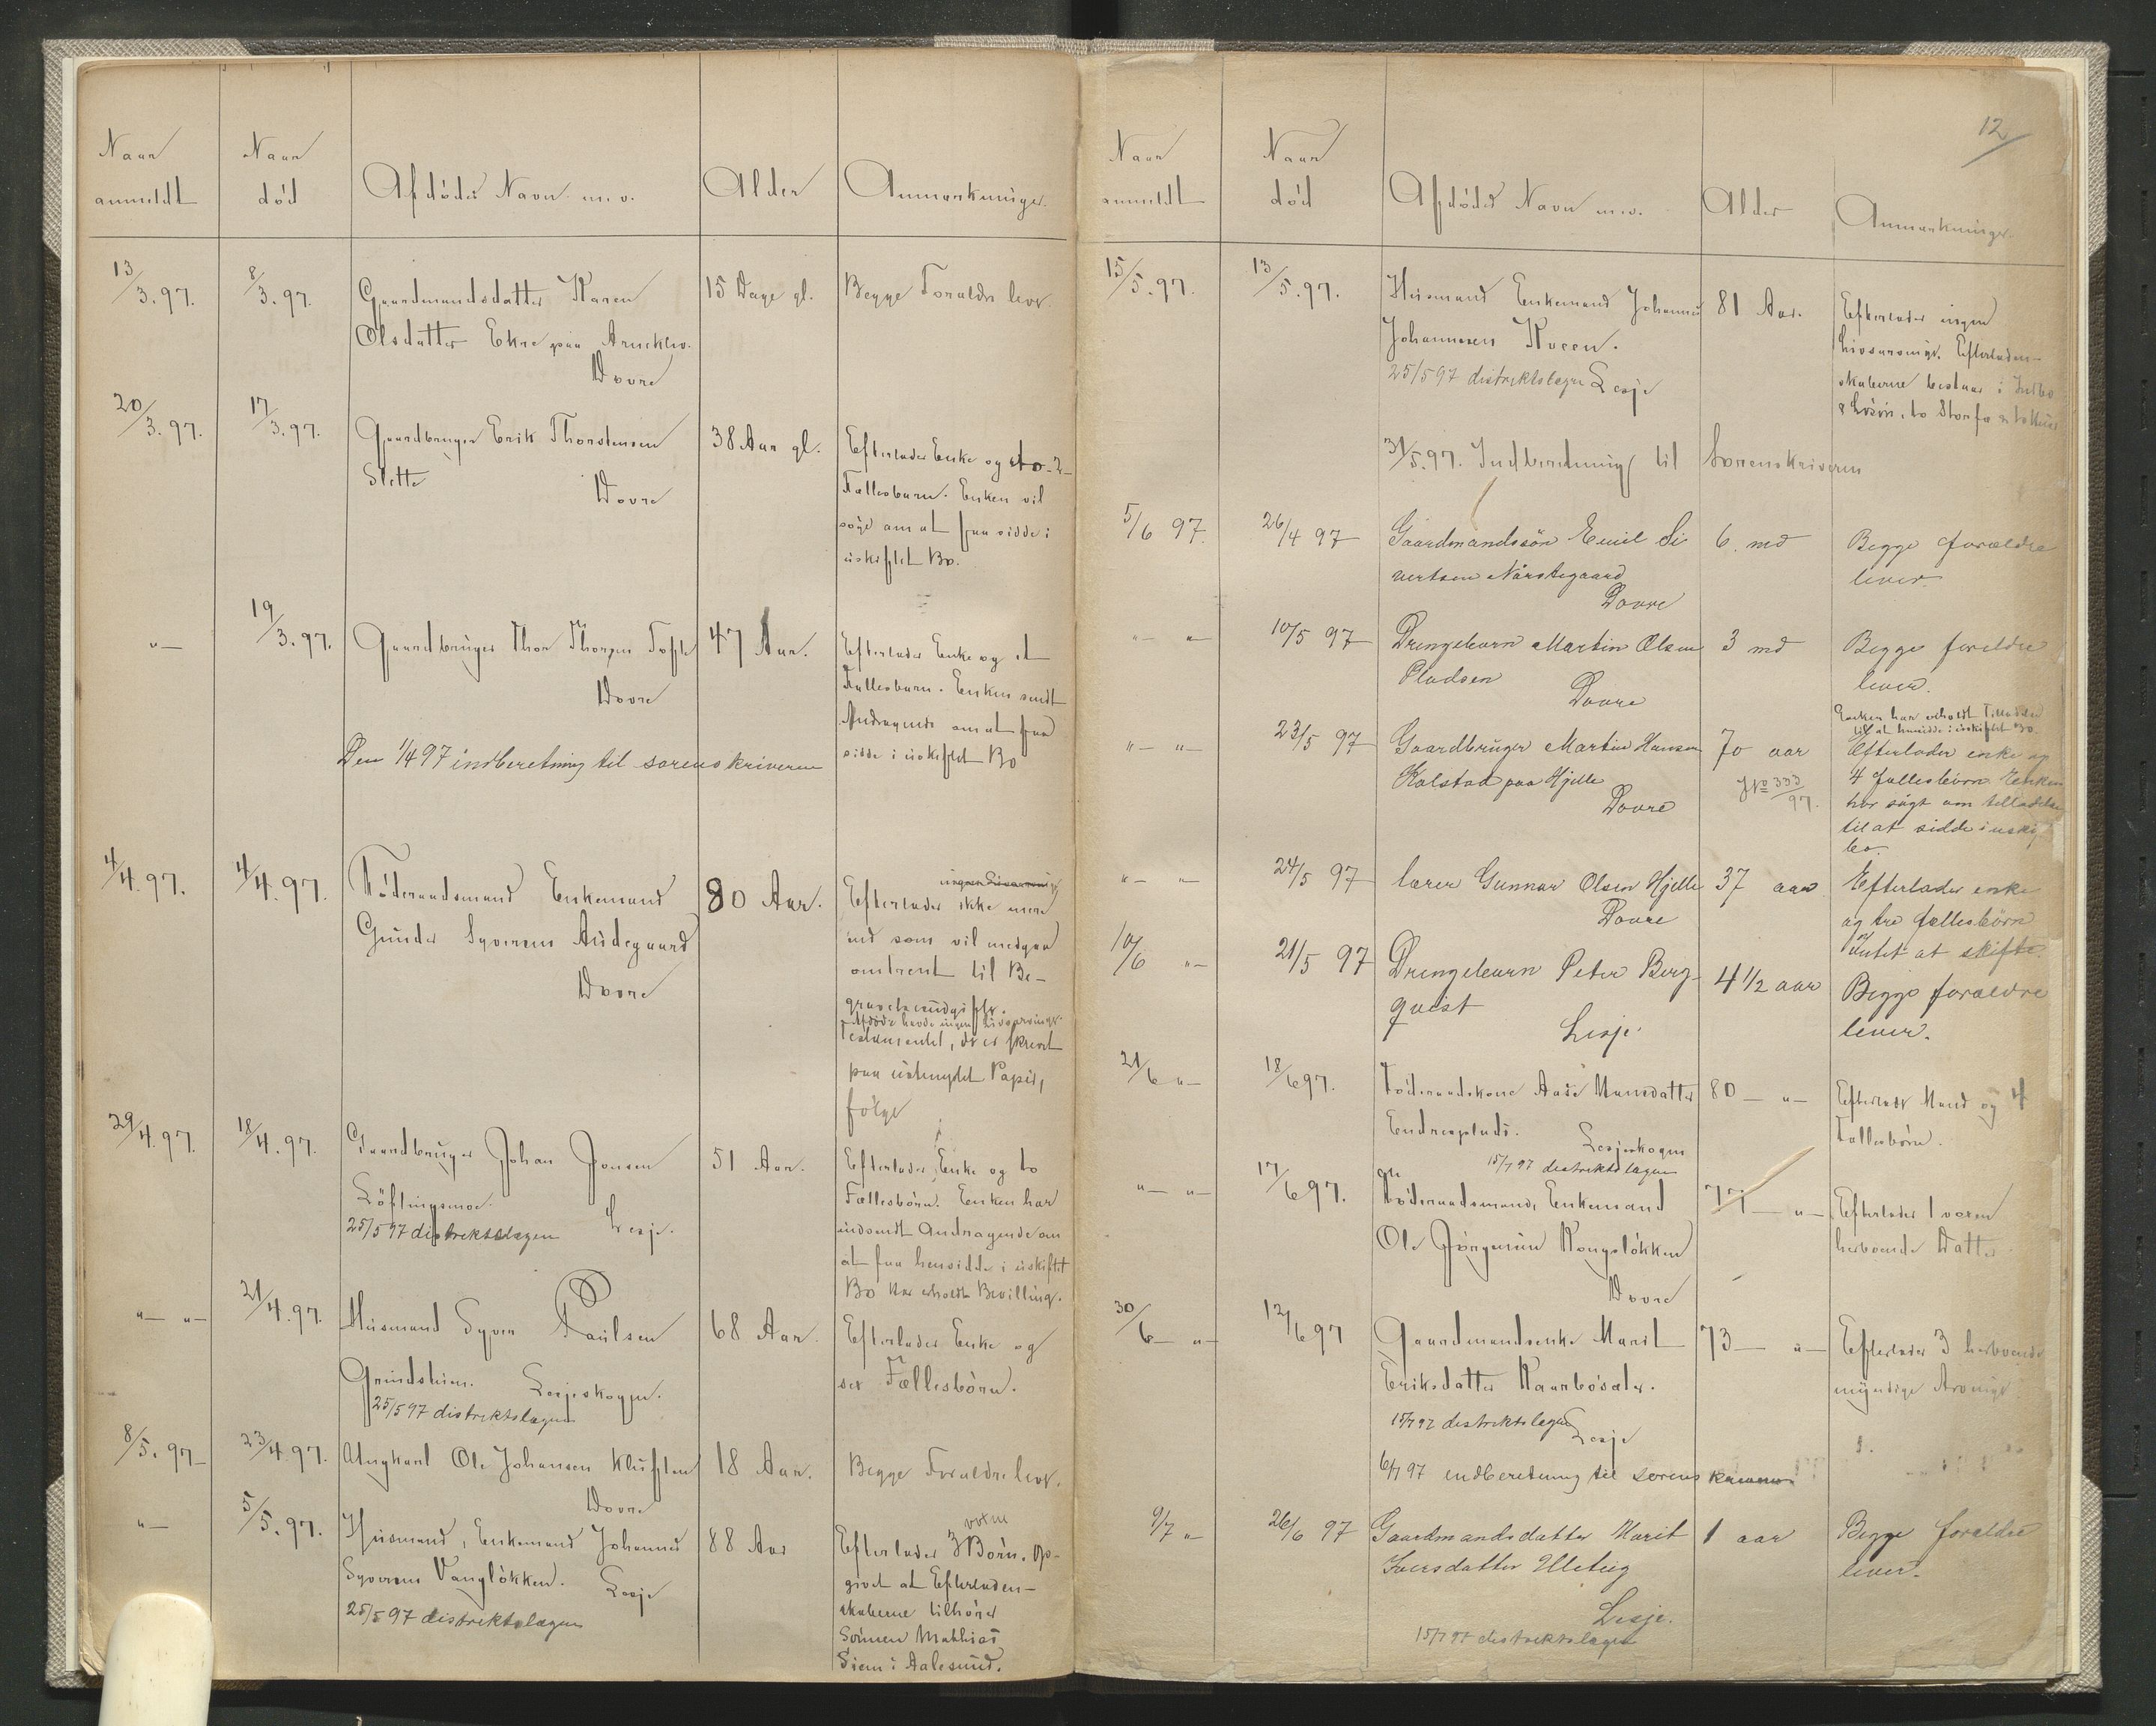 Naar anmeldt
Naar død
Afdødes Navn m.v.
Alder
Anmærkninger.
13/3.97.
8/3.97.
Gaardmandsdatter Karen
15 Dage gl.
Begge Forældre lever.
Olsdatter Ekre paa
Dovre
20/3.97.
17/3.97.
Gaardbruger Erik Thorstensen
38 Aar gl.
Efterlader Enke og 2
Slette
Dovre
Fællesbarn. Enken vil
søge om at faa sidde i
uskiftet Bo.
"
19/3.97.
Gaardbruger Thor Thorsen Tofte
47 Aar.
Efterlader Enke og et
Dovre
Fællesbarn. Enken sendt
Andragende om at faa
sidde i uskiftet Bo
Den 1/4 97 indberetning til sorenskriveren
4/4.97.
4/4.97.
Föderaadsmand Enkemand
80 Aar.
ingen Livsarvinger
Efterlader ikke mere
Gunder Syversen Audegaard
Dovre
end som vil medgaa
omtrent til Be-
gravelsesudgifter.
Afdøde havde ingen Livsarvinger.
Testamentet, der er skrevet
paa ustemplet Papir,
følger
29/4.97.
18/4.97.
Gaardbruger Johan Jonsen
51 Aar.
Efterlader Enke og to
Löftingsmoe.
Lesje.
25/5 97 distriktslægen
Fællesbörn. Enken har
indsendt Andragende om
at faa hensidde i uskiftet
Bo Har erholdt Bevilling.
" "
21/4.97.
Husmand Syver Paulsen
68 Aar.
Efterlader Enke og
Grundsheim.
Lesjeskogen.
sex Fællesbörn.
25/5 97 distriktslægen
8/5.97
23/4.97.
Ungkarl Ole Johansen Kluften
18 Aar.
Begge Forældre lever.
Dovre
"
5/5.97.
Husmand, Enkemand Johannes
88 Aar
voxne
Efterlader 3 Börn. Op-
Syversen Vanglökken.
Lesje
givet at Efterladen-
skaberne tilhører
25/5 97 distriktslægen
Sönnen Mathias
Siem i Aalesund.
12
Naar anmeldt
Naar død
Afdødes Navn m.v.
Alder
Anmærkninger.
15/5.97.
13/5.97.
Husmand Enkemand Johannes
81 Aar.
Efterlader ingen
Johannesen Kveen.
Livsarvinger. Efterladen-
25/5 97 distriktslægen Lesje
skaberne bestaar i Indbo
& Lösöre, to Storfe &
31/5.97. Indberetning til Sorenskriveren
5/6 97.
26/4 97
Gaardmandssön Emil Si
6. md
Begge forældre
vertsen Nörstegaard
lever.
Dovre
" "
10/5 97
Drengebarn Martin Olsen
3 md
Begge foreldre
Pladsen
Dovre
lever.
Enken har erholdt Tilladelse
til at hensidde i uskiftet Bo.
" "
23/5 97
Gaardbruger Martin Hansen
70 aar
Efterlader enke og
Kolstad paa Hjelle
J№ 333/97.
4 fællesbörn. Enken
Dovre
har sögt om tilladelse
til at sidde i uskif
bo.
" "
24/5 97
lærer Gunnar Olsen Hjelle
37 aar
Efterlader enke
Dovre
og tre fællesbörn
Intet at skifte.
10/6 "
21/5 97
Drengebarn Peter Berg-
4 1/2 aar
Begge forældre
quist
Lesje.
lever.
21/6 "
18/6 97.
Föderaadskone Aase Hansdatter
80 "
Efterlader Mand og 4
Endresplads.
Lesjeskogen
Fællesbörn.
15/7 97 distriktslægen
" "
17/6 97.
Föderaadsmand, Enkemand
77 "
Efterlader 1 voxen
Ole Jörgensen Kongslökken
herboende Datter
Dovre
30/6 "
12/6 97
Gaardmandsenke Marit
73 "
Efterlader 3 herboende
Eriksdatter Kaarbösater.
myndige Arvinger.
15/7 97 distriktslægen
Lesje
6/7 97 indberetning til sorenskriveren
9/7 "
26/6 97
Gaardmandsdatter Marit
1 aar
Begge forældre
Iversdatter Ulateig
lever.
Lesje.
15/7 97 distriktslægen